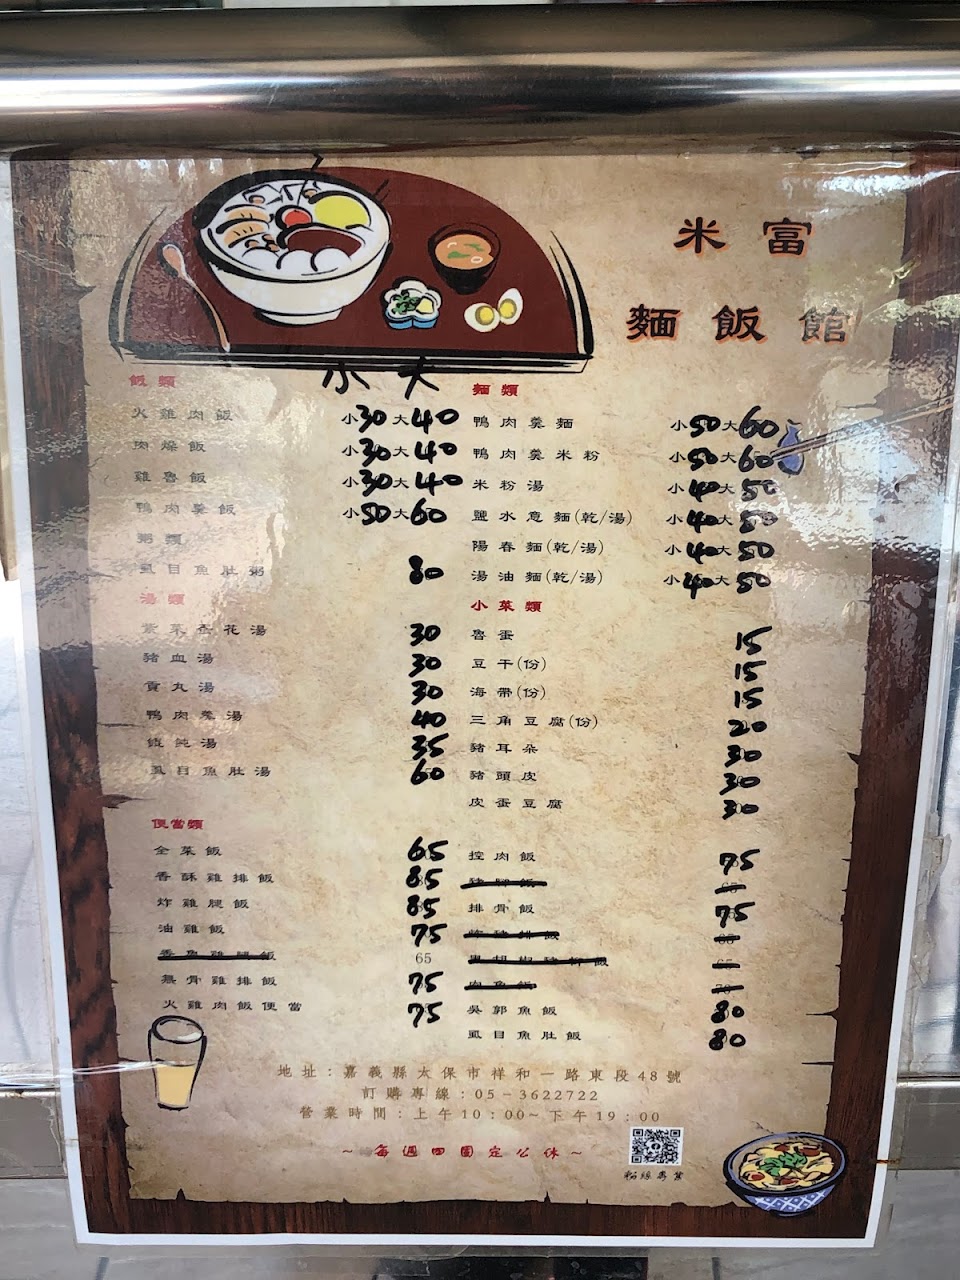 米富
麵飯館
小 大
飯類
火雞肉飯 小30大40
肉燥飯 小30大40
雞魯飯 小30大40
鴨肉羹飯 小50大60
粥類
虱目魚肚粥 80
湯類
紫菜蛋花湯 30
豬血湯 30
貢丸湯 30
鴨肉羹湯 40
餛飩湯 35
虱目魚肚湯 60
麵類
鴨肉羹麵 小50大60
鴨肉羹米粉 小50大60
米粉湯 小40大50
鹽水意麵(乾/湯) 小40大50
陽春麵(乾/湯) 小40大50
湯油麵(乾/湯) 小40大50
小菜類
魯蛋 15
豆干(份) 15
海帶(份) 15
三角豆腐(份) 20
豬耳朵 30
豬頭皮 30
皮蛋豆腐 30
便當類
全菜飯 65
香酥雞排飯 85
炸雞腿飯 85
油雞飯 75
65
無骨雞排飯 75
火雞肉飯便當 75
控肉飯 75
排骨飯 75
吳郭魚飯 80
虱目魚肚飯 80
地址:嘉義縣太保市祥和一路東段48號
訂購專線:05-3622722
營業時間:上午10:00~下午19:00
~每週四固定公休~